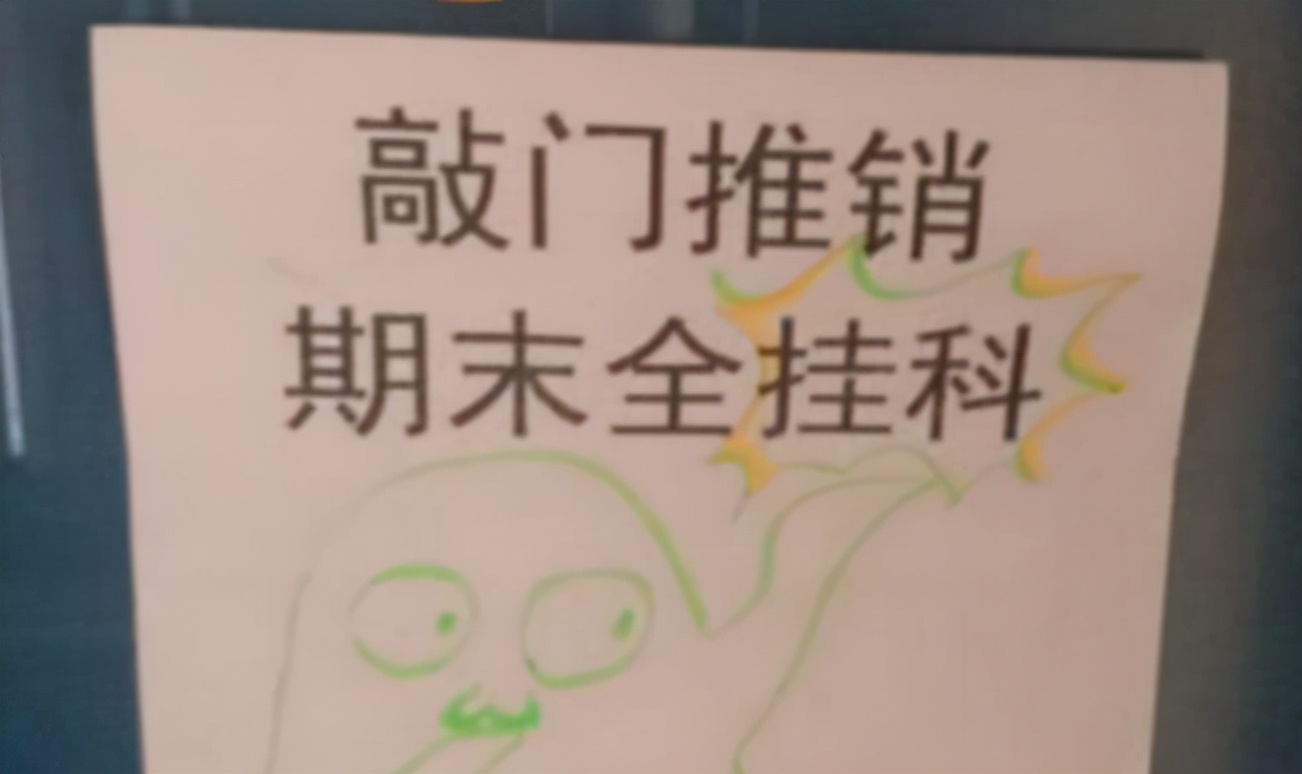 敲门推销
期末全挂科